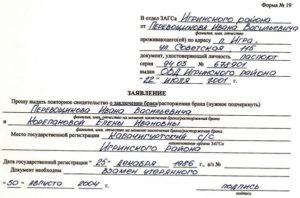 Форма № 19
В отдел ЗАГСа Игринского района
от Перевощикова Ивана Васильевича
фамилия, имя, отчество
проживающего(ей) по адресу п. Игра
ул. Советская 115
документ, удостоверяющий личность паспорт
серия 94 03 №
выдан ОВД Игринского района
"22" июля 2001 г.
ЗАЯВЛЕНИЕ
Прошу выдать повторное свидетельство о заключении брака/расторжения брака (нужное подчеркнуть)
Перевощикова Ивана Васильевича
фамилия, имя, отчество на момент заключения брака/расторжения брака
и Корепановой Елены Ивановны
фамилия, имя, отчество на момент заключения брака/расторжения брака
Место государственной регистрации с/с
Игринского района
Дата государственной регистрации "25" декабря 1986 г., а/з №
Документ необходим взамен утерянного
"30" августа 2004 г. подпись
подпись